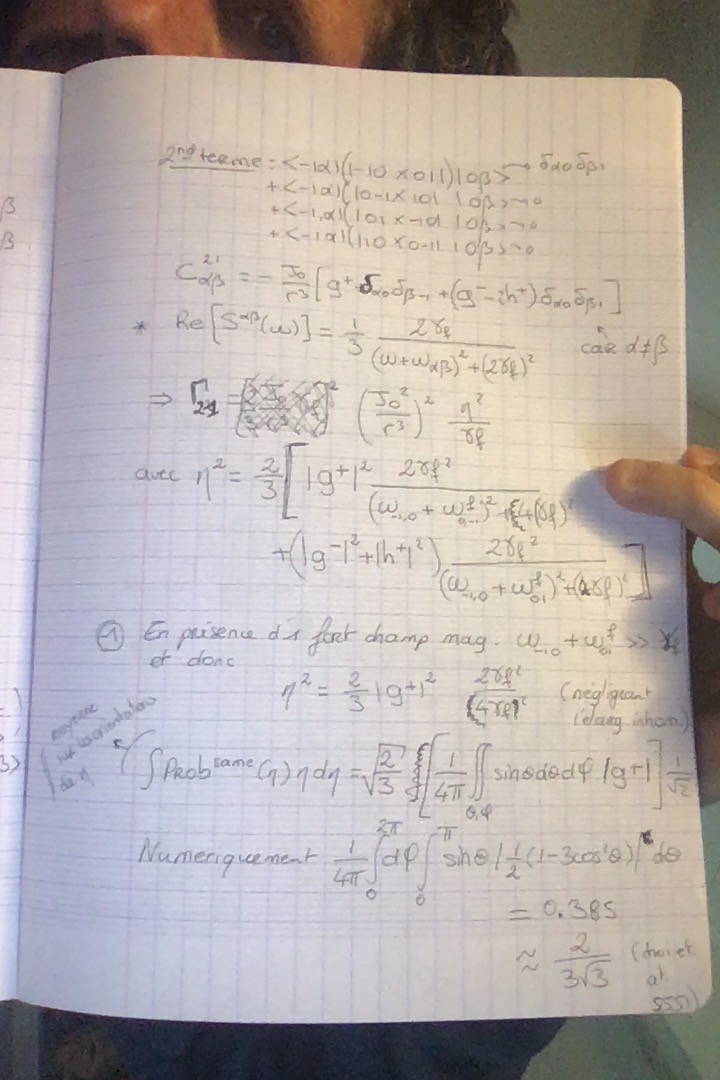 2nd terme : <-1α|(|-10 X 01|)|0β> → δα0 δβ1
+ <-1α|(|0-1 X 10| |0β> → 0
+ <-1,α|(|01 X -10| |0β> → 0
+ <-1α|(|10 X 0-1| |0β> → 0
C²¹αβ = - J0/r³ [g⁺ δα0 δβ-1 + (g⁻ - ih⁺) δα0 δβ1]
* Re[S^αβ(ω)] = 1/3 2γf / ((ω+ωαβ)² + (2γf)²) car α≠β
⇒ Γ21 = (J0²/r³)² η²/γf
avec η² = 2/3 [ |g⁺|² 2γf² / ((ω-1,0 + ω^f 0,-1)² + 4(γf)²)
+ (|g⁻|² + |h⁺|²) 2γf² / ((ω-1,0 + ω^f 0,1)² + (2γf)²) ]
① En présence d1 fort champ mag. ω-1,0 + ω^f 0,1 >> γf
et donc
η² = 2/3 |g⁺|² 2γf² / (4γf)² (négligeant
l'élarg inhom.)
moyenne
sur les orientations
de η
∫Prob^same(η) η dη = √(2/3) [1/4π ∬θ,φ sinθ dθ dφ |g⁺|] 1/√2
Numeriquement 1/4π ∫0^2π dφ ∫0^π sinθ |1/2 (1-3cos²θ)| dθ
= 0.385
≈ 2/(3√3) (choi et
al